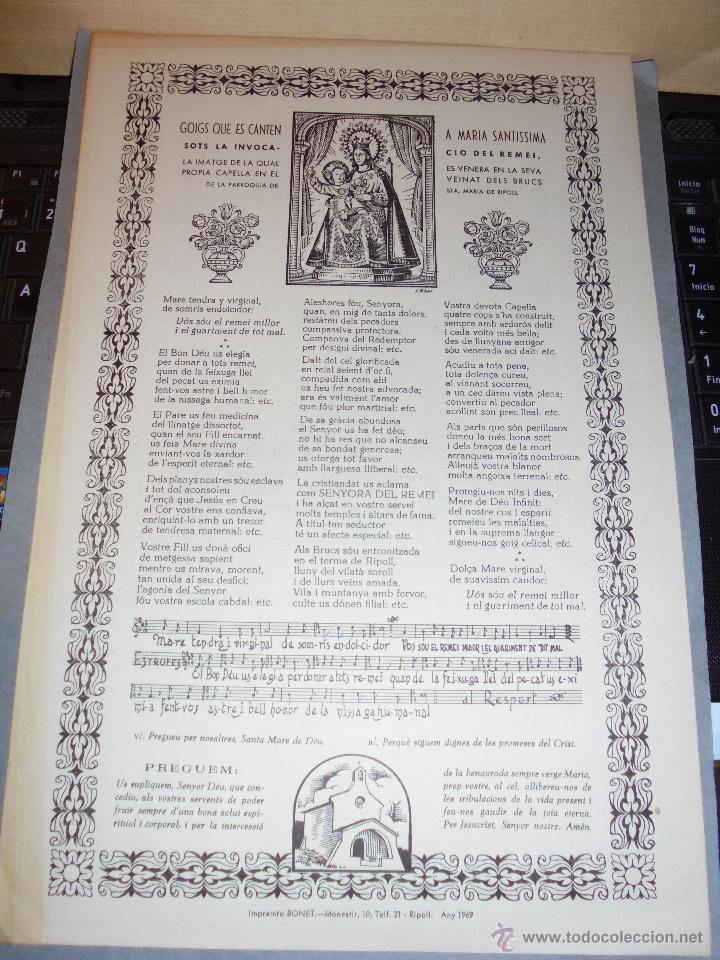 GOIGS QUE ES CANTEN
SOTS LA INVOCA-
LA IMATGE DE LA QUAL
PROPIA CAPELLA EN EL
DE LA PARROQUIA DE
A MARIA SANTISSIMA
CIO DEL REMEI,
ES VENERA EN LA SEVA
VEINAT DELS BRUCS
STA. MARIA DE RIPOLL
Mare tendra y virginal,
de somris endolcidor:
Vós sóu el remei millor
i el guariment de tot mal.
El Bon Déu us elegia
per donar a tots remei,
quan de la feixuga llei
del pecat us eximia
fent-vos astre i bell honor
de la nissaga humanal: etc.
El Pare us feu medicina
del llinatge dissortat,
quan el seu Fill encarnat
us foia Mare divina
enviant-vos la xardor
de l'esperit eternal: etc.
Dels planys nostres sóu esclava
i tot dol aconsoleu
d'ençà que Jesús en Creu
al Cor vostre ens confiava,
enriquint-lo amb un tresor
de tendresa maternal: etc.
Vostre Fill us donà ofici
de metgessa sapient
mentre us mirava, morent,
tan unida al seu desfici;
l'agonia del Senyor
fóu vostra escola cabdal: etc.
Aleshores fóu, Senyora,
quan, en mig de tants dolors,
restàreu dels pecadors
compassiva protectora.
Companya del Redemptor
per designi divinal: etc.
Dalt del cel glorificada
en reial seient d'or fi,
compadida com ahi
us heu fet nostra advocada;
ara és valiment l'amor
que fóu plor martirial: etc.
De sa gràcia abundosa
el Senyor us ha fet dèu;
no hi ha res que no alcanseu
de sa bondat generosa;
us otorga tot favor
amb llarguesa lliberal: etc.
La cristiandat us aclama
com SENYORA DEL REMEI
i ha alçat en vostre servei
molts temples i altars de fama.
A titul tan seductor
té un afecte especial: etc.
Als Brucs sóu entronitzada
en el terme de Ripoll,
lluny del vilatà soroll
i de llurs veïns amada.
Vila i muntanya amb fervor,
culte us dónen filial: etc.
Vostra devota Capella
quatre cops s'ha construït,
sempre amb ardorós delit
i cada volta més bella;
des de llunyana antigor
sóu venerada ací dalt: etc.
Acudiu a tota pena,
tota dolença cureu,
al vianant socorreu,
a un cec dàreu vista plena;
convertiu al pecador
acollint son prec lleal: etc.
Als parts que són perillosos
doneu la més bona sort
i dels braços de la mort
arranqueu malalts nombrosos.
Alleujà vostra blanor
molta angoixa terrenal: etc.
Protegiu-nos nits i dies,
Mare de Déu Infinit:
del nostre cos i esperit
remeieu les malalties,
i en la suprema llangor
sigueu-nos goig celical: etc.
Dolça Mare virginal,
de suavíssim candor:
Vós sóu el remei millor
i el guariment de tot mal.
Mare tendra i virginal de som-ris en-dol-ci-dor Vos sou el remei millor i el guariment de tot mal
Estrofes El Bon Déu us e-le-gi-a per donar a tots re-mei quan de la fei-xuga llei del pe-cat us e-xi
mi-a fent-vos as-tre i bell honor de la nissaga hu-ma-nal al Respost
v/. Pregueu per nosaltres, Santa Mare de Déu.
r/. Perquè siguem dignes de les promeses del Crist.
PREGUEM:
Us supliquem, Senyor Déu, que con-
cediu, als vostres servents de poder
fruir sempre d'una bona salut espi-
ritual i corporal, i per la intercessió
de la benaurada sempre verge Maria,
prop vostre, al cel, allibereu-nos de
les tribulacions de la vida present i
feu-nos gaudir de la joia eterna.
Per Jesucrist, Senyor nostre. Amèn.
Impremta BONET.—Monestir, 10, Telf. 21 - Ripoll. Any 1969
F1
Q
A
Z
Inicio
Bloq
Num
7
Inicio
4
1
Fin
0
todocoleccion
www.todocoleccion.net